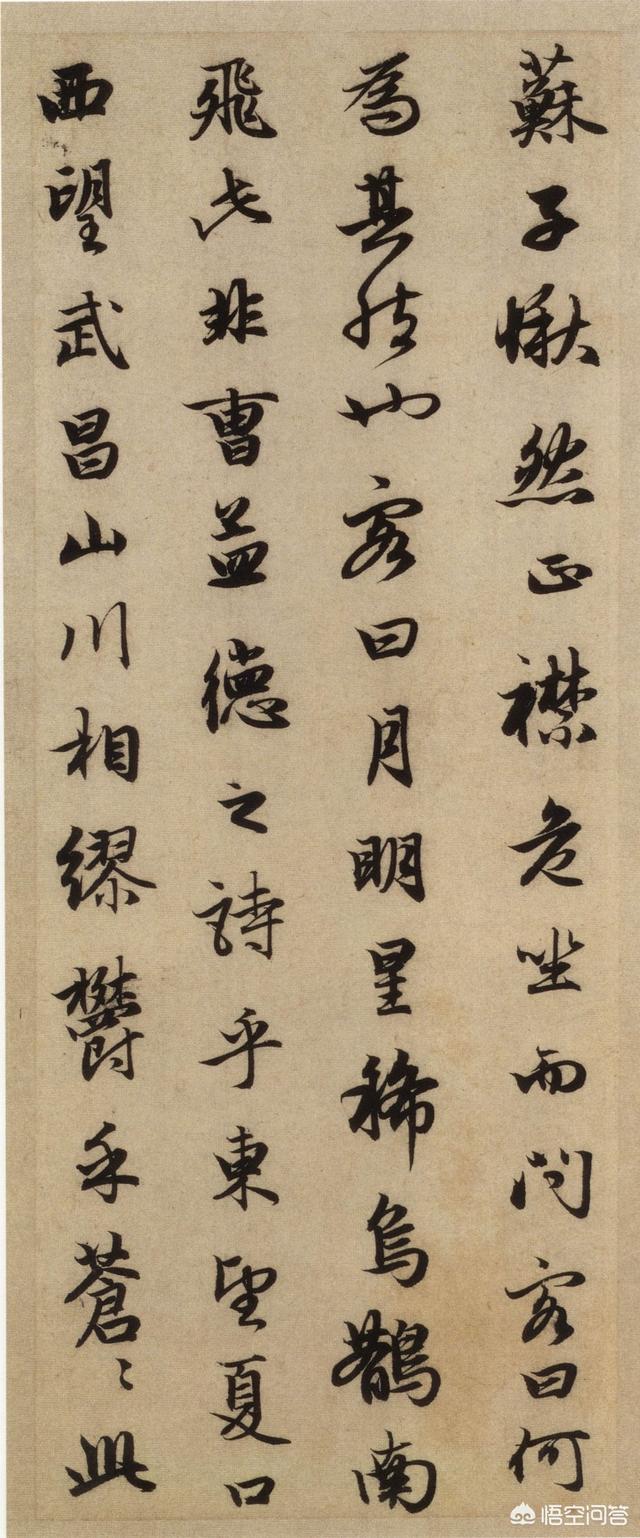 蘇子愀然正襟危坐而問客曰何
為其然也客曰月明星稀烏鵲南
飛此非曹益德之詩乎東望夏口
西望武昌山川相繆欝乎蒼〻此
悟空问答